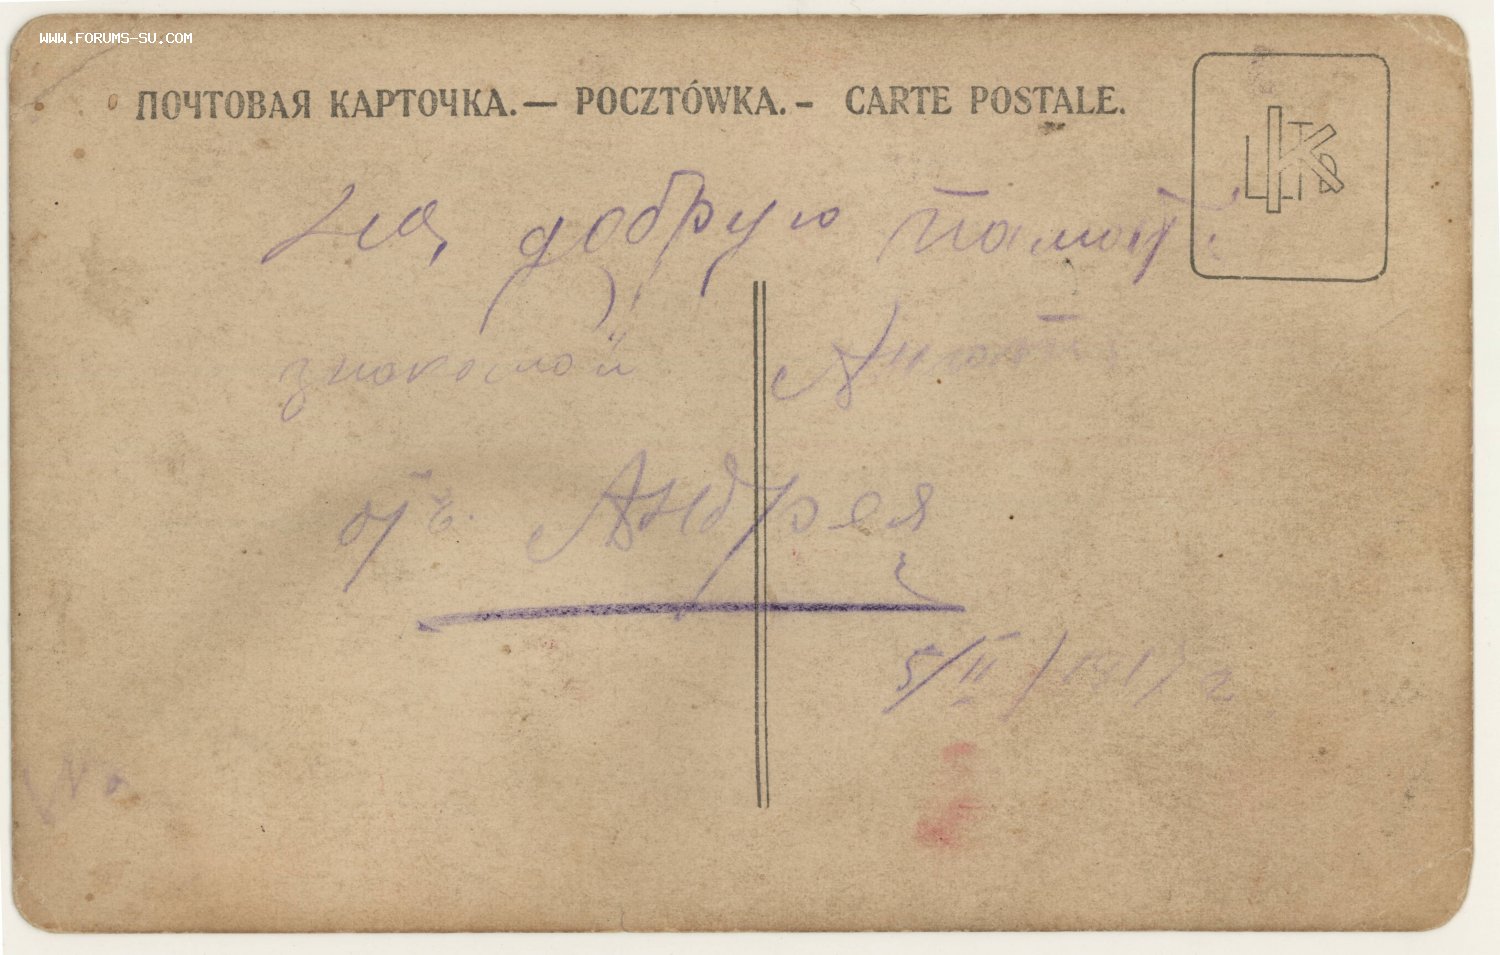 WWW.FORUMS-SU.COM
ПОЧТОВАЯ КАРТОЧКА.— POCZTÓWKA.– CARTE POSTALE.
На добрую
знакомой
отъ Андрея
5/II/191 г